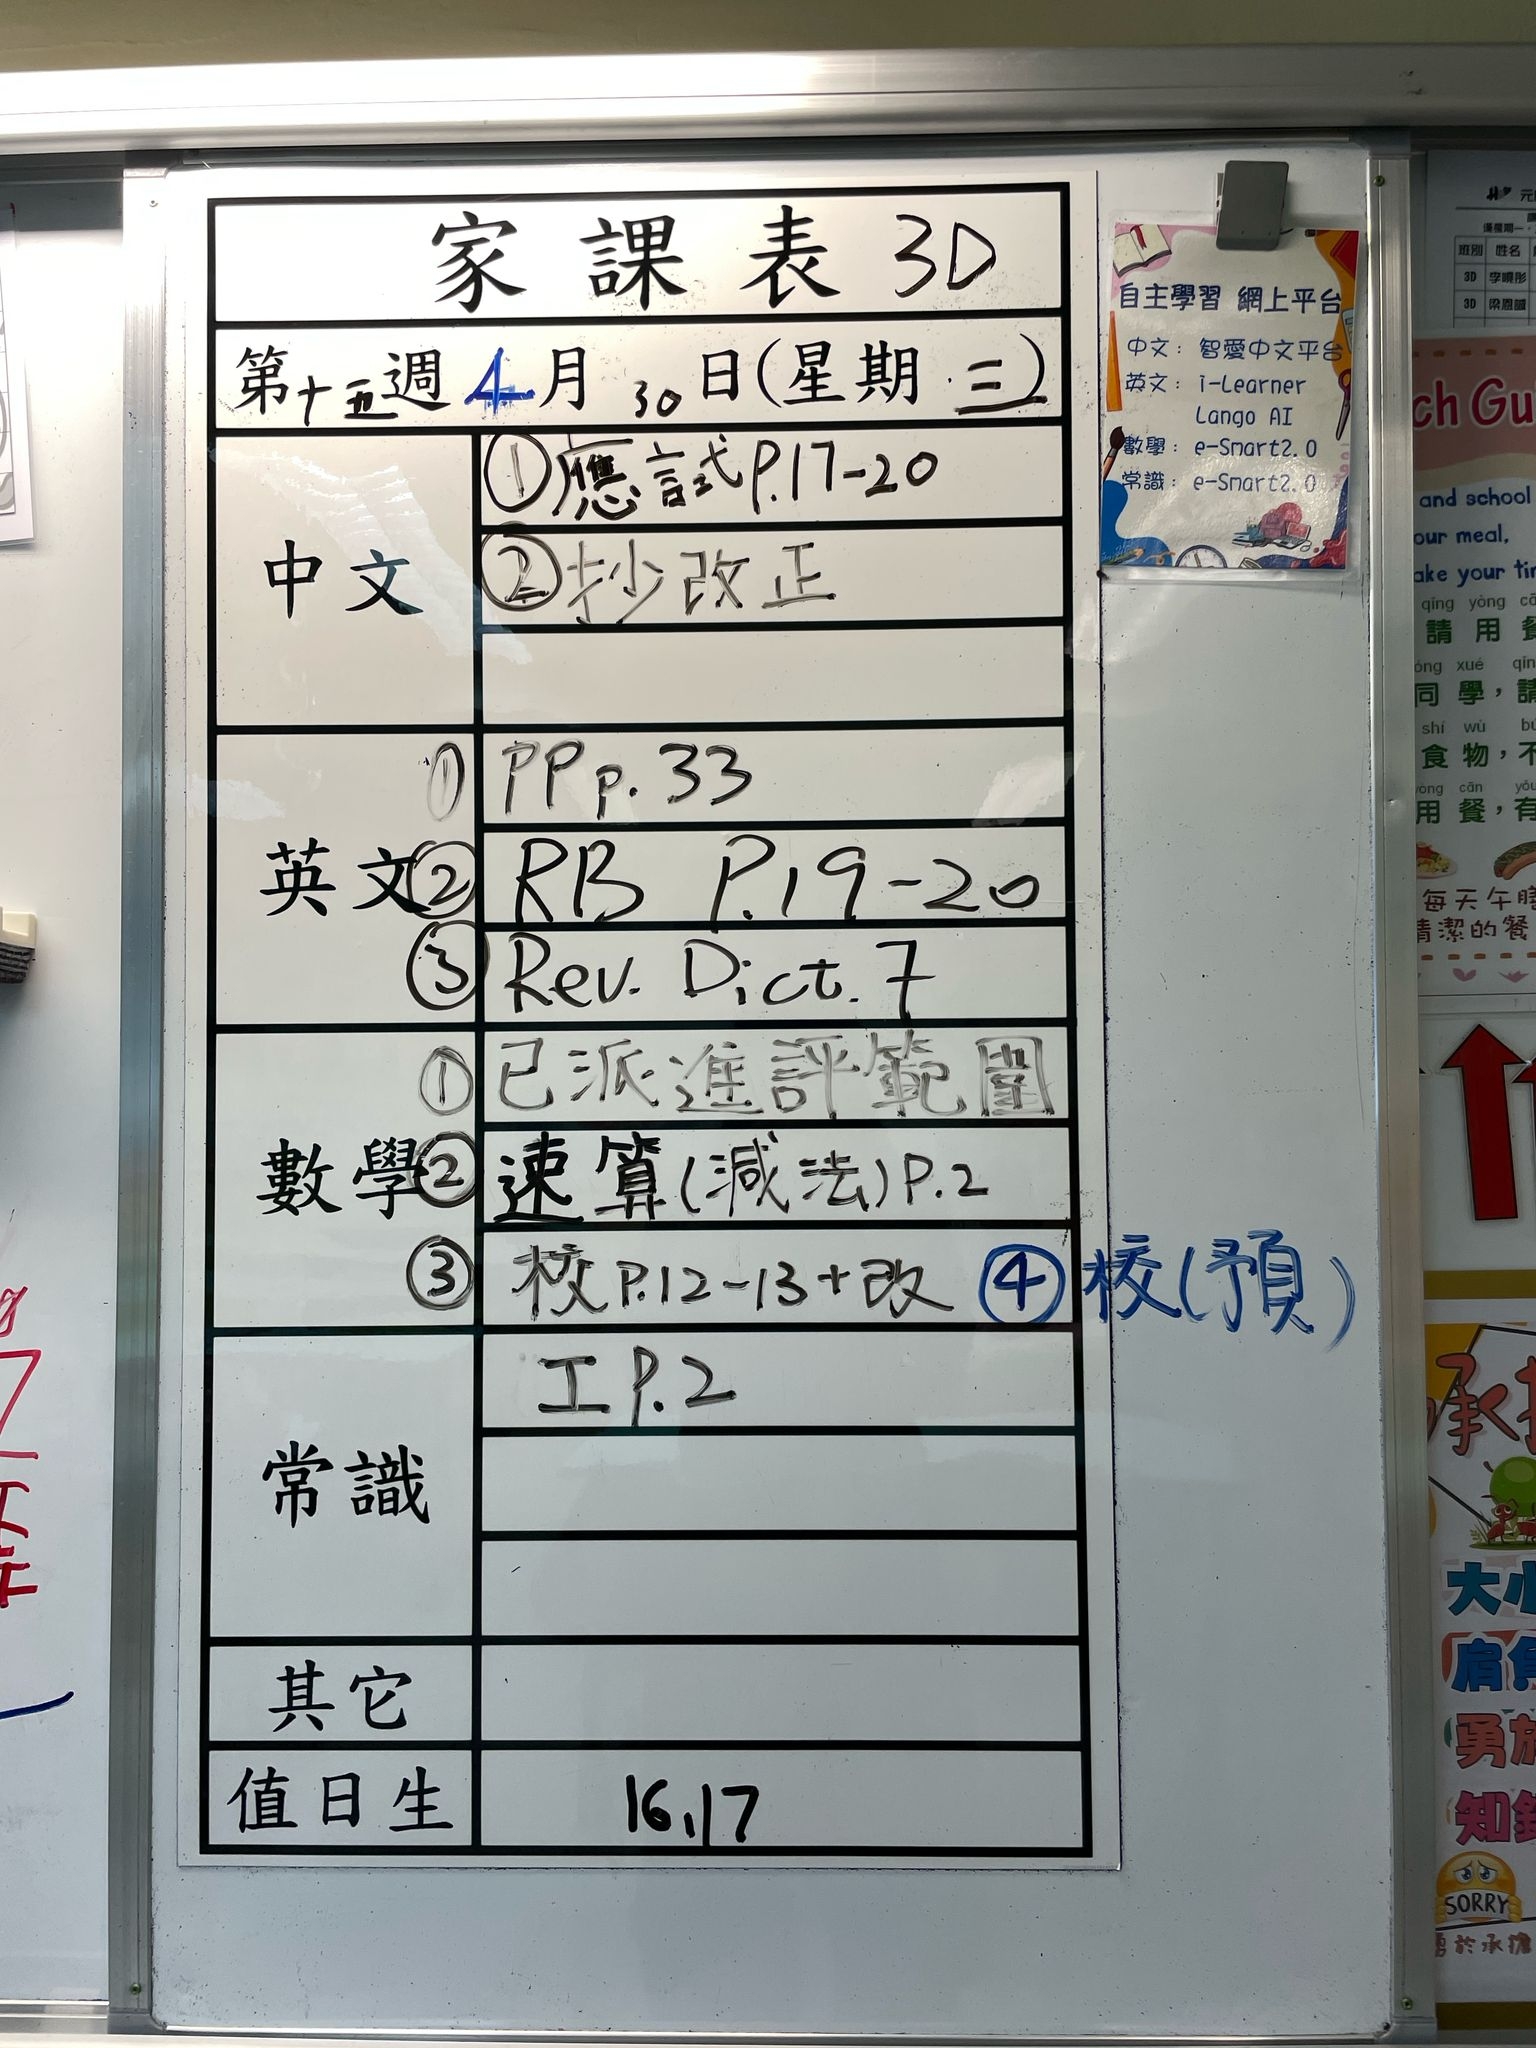 家課表 3D
第十五週 4月 30日(星期 三)
中文
①應試P.17-20
②抄改正
英文
① PP p.33
② RB P.19-20
③ Rev. Dict. 7
數學
① 已派進評範圍
② 速算(減法)P.2
③ 校P.12-13+改 ④校(預)
常識
工P.2
其它
值日生
16,17
自主學習 網上平台
中文：智愛中文平台
英文：i-Learner
Lango AI
數學：e-Smart2.0
常識：e-Smart2.0
班別 姓名
3D 李曉彤
3D
ch Gu
and school
our meal,
ake your tim
qǐng yòng cā
請 用 餐
óng xué qǐn
同 學，請
shí wù bú
食 物，不
yòng cān yǒu
用 餐，有
每天午膳
清潔的餐
承擔
大心
肩負
勇於
知錯
SORRY
勇於承擔